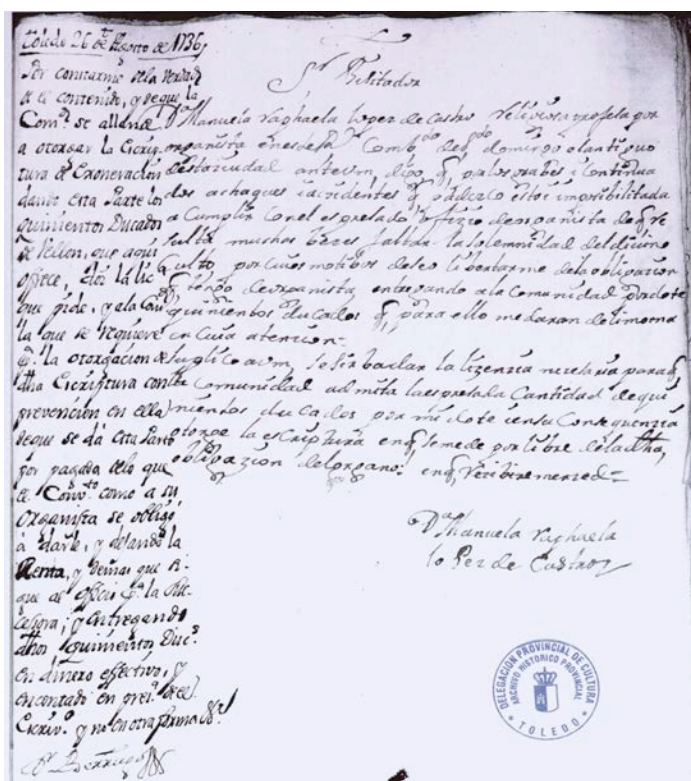 Toledo 26 de Agosto de 1736,
Por constarme dela verdad
de el contenido, y de que la
Com.d se allana
a otorgar la Escrip
tura de Exoneracion
dando esta Parte los
quinientos Ducados
de Vellon, que aqui
ofrece, doi la lic.
que pide, y a la Com.d
la que se requiere
p.a la otorgacion de
dha Escriptura con la
prevencion en ella
de que se dá esta Parte
por pagada delo que
el Conv.to como a su
Organista se obligó
à darle, y dejando la
Renta, y demas que
que al officio p.a la Suc
cesora; y entregando
dhos quinientos Duc.s
en dinero effectivo, y
en contado en pres.a de el
Escriv.o y no en otra forma
S.r Visitador
D.a Manuela Raphaela Lopez de Castro Relixiosa profesa por
organista en este Comb.to de S.to domingo el antiguo
de esta ciudad ante vm, digo q por los grabes i continua
dos achaques i acidentes q padezco estoi imposibilitada
a Cumplir con el espresado offizio de organista de q re
sulta muchas bezes faltar la solemnidad del divino
Culto por cuios motibos deseo libertarme dela obligazion
q tengo de organista, entregando ala Comunidad por dote
quinientos ducados q para ello me daran de limosna
en Cuia atenzion=
suplico a vm, se sirba dar la lizenzia nezesaria para q
la Comunidad admita la espresada Cantidad de qui
nientos ducados por mi dote i en su Consequenzia
otorge la escriptura en q se me de por libre de la dha,
obligazion del organo: en q rezibire merced=
D.a Manuela Raphaela
lopez de Castro
DELEGACIÓN PROVINCIAL DE CULTURA
ARCHIVO HISTORICO PROVINCIAL
TOLEDO